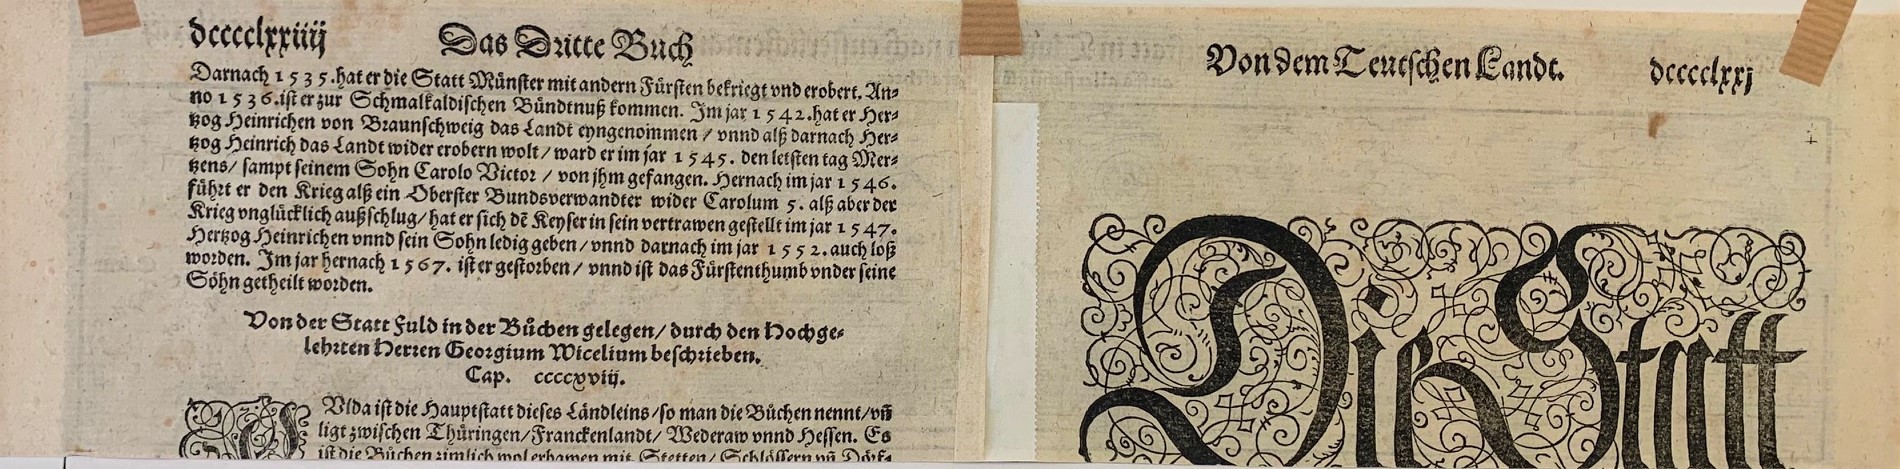 dcccclxxiiij
Das Dritte Buch
Darnach 1535. hat er die Statt Münster mit andern Fürsten bekriegt vnd erobert. An⸗
no 1536. ist er zur Schmalkaldischen Bündtnuß kommen. Im jar 1542. hat er Her⸗
tzog Heinrichen von Braunschweig das Landt eyngenommen / vnnd alß darnach Her⸗
tzog Heinrich das Landt wider erobern wolt / ward er im jar 1545. den letsten tag Mer⸗
tzens / sampt seinem Sohn Carolo Victor / von jhm gefangen. Hernach im jar 1546.
führt er den Krieg alß ein Oberster Bundsverwandter wider Carolum 5. alß aber der
Krieg vnglücklich außschlug / hat er sich dē Keyser in sein vertrawen gestellt im jar 1547.
Hertzog Heinrichen vnnd sein Sohn ledig geben / vnnd darnach im jar 1552. auch loß
worden. Im jar hernach 1567. ist er gestorben / vnnd ist das Fürstenthumb vnder seine
Söhn getheilt worden.
Von der Statt Fuld in der Bůchen gelegen / durch den Hochge⸗
lehrten Herren Georgium Wicelium beschrieben.
Cap. ccccxviij.
Vlda ist die Hauptstatt dieses Ländleins / so man die Bůchen nennt / vñ
ligt zwischen Thüringen / Franckenlandt / Wederaw vnnd Hessen. Es
ist die Bůchen zimlich wol erbawen mit Stetten / Schlössern vñ Dörf⸗
Von dem Teutschen Landt.
dcccclxxj
Die Statt